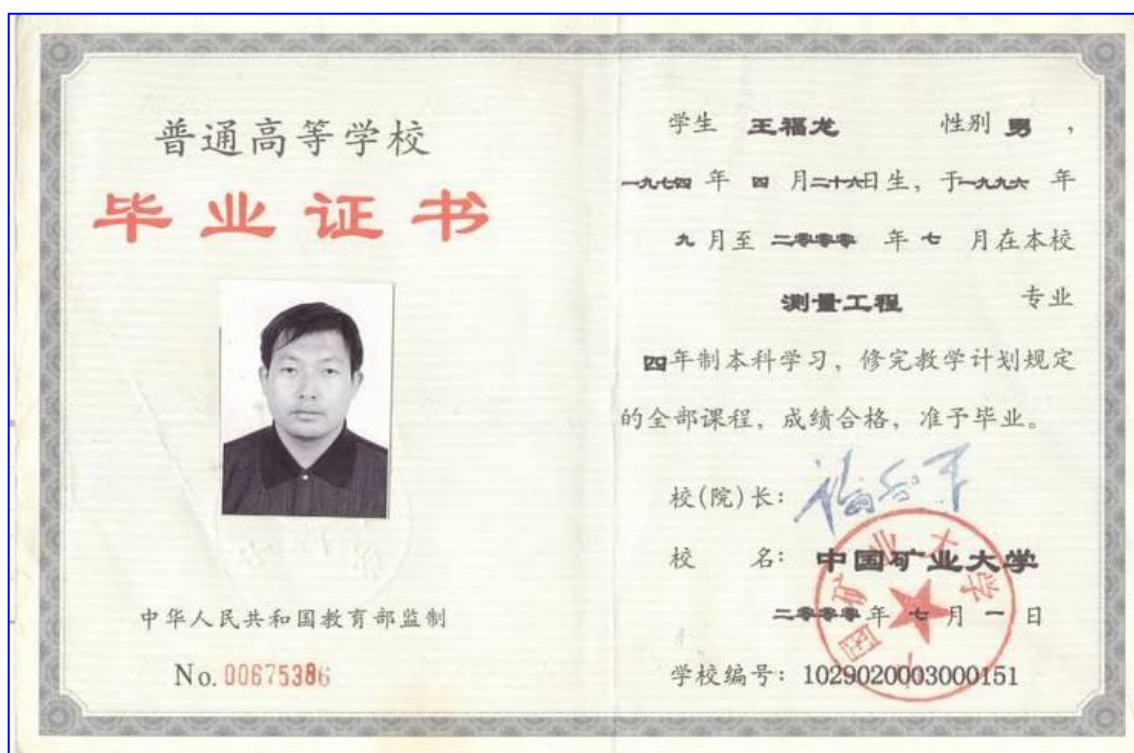 普通高等学校
毕业证书
中华人民共和国教育部监制
No. 00675386
学生 王福龙 性别 男 ，
一九七四 年 四 月二十六日生，于一九九六 年
九 月至 二零零零 年 七 月在本校
测量工程 专业
四年制本科学习，修完教学计划规定
的全部课程，成绩合格，准予毕业。
校(院)长：
校 名： 中国矿业大学
二零零零年 七 月 一 日
学校编号： 1029020003000151
中国矿业大学